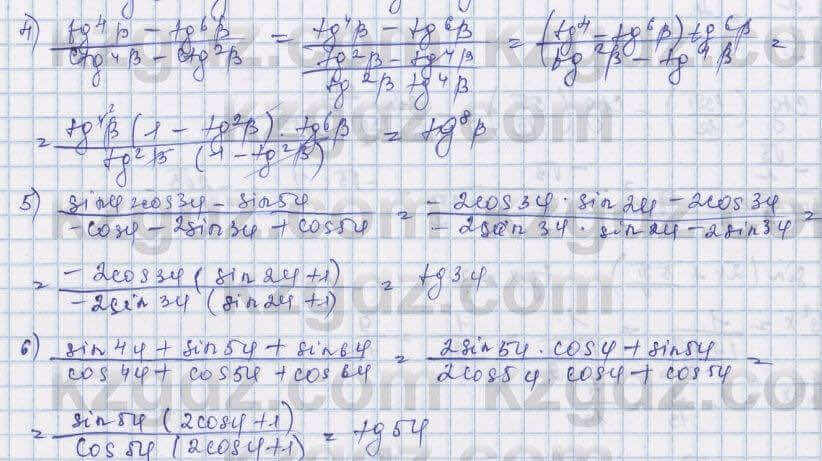 4) (tg⁴β − tg⁶β)/(ctg⁴β − ctg²β) = (tg⁴β − tg⁶β)/((tg²β − tg⁴β)/(tg²β tg⁴β)) = ((tg⁴ − tg⁶β) tg⁶β)/(tg²β − tg⁴β) =
= (tg⁴²β (1 − tg²β) · tg⁶β)/(tg²β (1 − tg²β)) = tg⁸β
5) (sin4 2cos34 − sin54)/(−cos4 − 2sin34 + cos54) = (−2cos34 · sin24 − 2cos34)/(−2sin34 · sin24 − 2sin34) =
= (−2cos34 (sin24 + 1))/(−2sin34 (sin24 + 1)) = tg34
6) (sin44 + sin54 + sin64)/(cos44 + cos54 + cos64) = (2sin54 · cos4 + sin54)/(2cos54 · cos4 + cos54) =
= (sin54 (2cos4 + 1))/(cos54 (2cos4 + 1)) = tg54
kzgdz.com